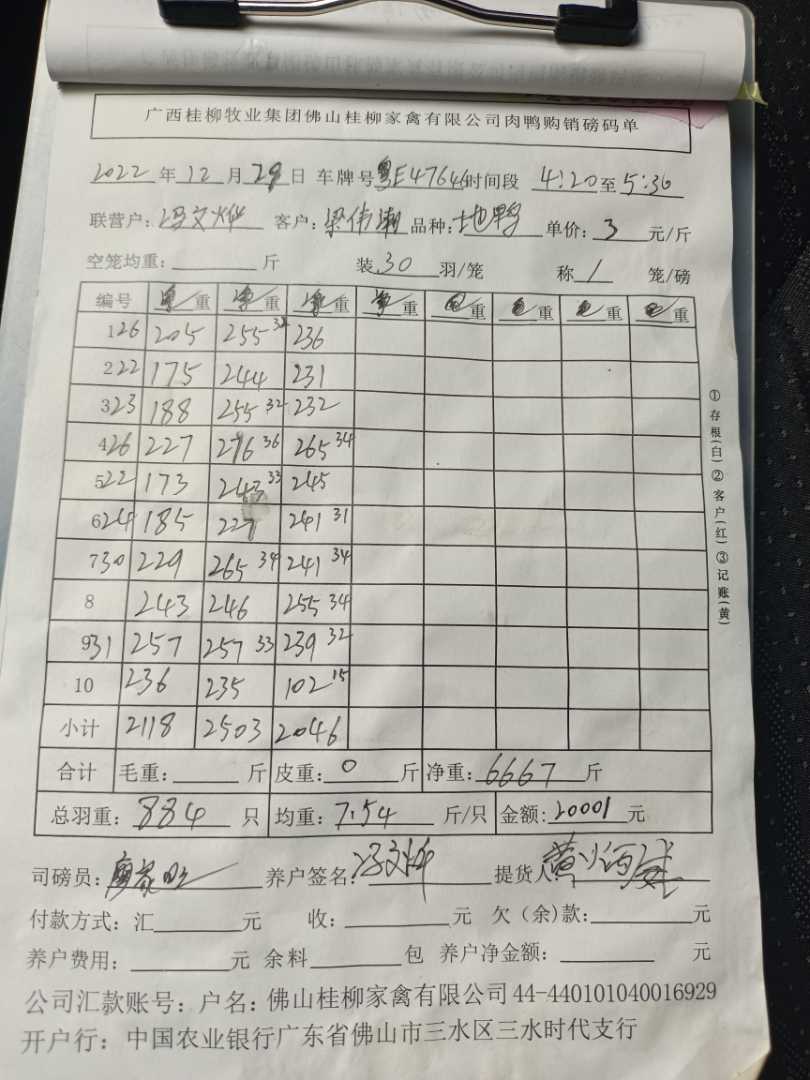 广西桂柳牧业集团佛山桂柳家禽有限公司肉鸭购销磅码单
2022年12月29日 车牌号粤E47646时间段 4:20至5:30
联营户:冯文烨 客户:梁伟潮 品种:土地鸭 单价:3元/斤
空笼均重:斤 装30羽/笼 称1笼/磅
编号 净重 净重 净重 净重 重 重 重 重
1 26 205 255 32 236
2 22 175 244 231
3 23 188 255 32 232
4 26 227 276 36 265 34
5 22 173 243 33 245
6 24 185 227 241 31
7 30 229 265 34 241 34
8 243 246 255 34
9 31 257 257 33 239 32
10 236 235 102 15
小计 2118 2503 2046
合计 毛重:斤 皮重:0斤 净重:6667斤
总羽重:884只 均重:7.54斤/只 金额:20001元
司磅员: 养户签名:冯文烨 提货人:
付款方式:汇元 收:元 欠(余)款:元
养户费用:元 余料包 养户净金额:元
公司汇款账号:户名:佛山桂柳家禽有限公司 44-440101040016929
开户行:中国农业银行广东省佛山市三水区三水时代支行
①存根(白)②客户(红)③记账(黄)